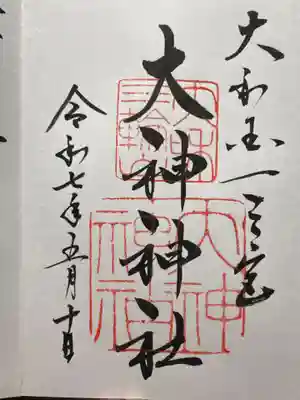 大和国一之宮
大神神社
令和七年五月十日